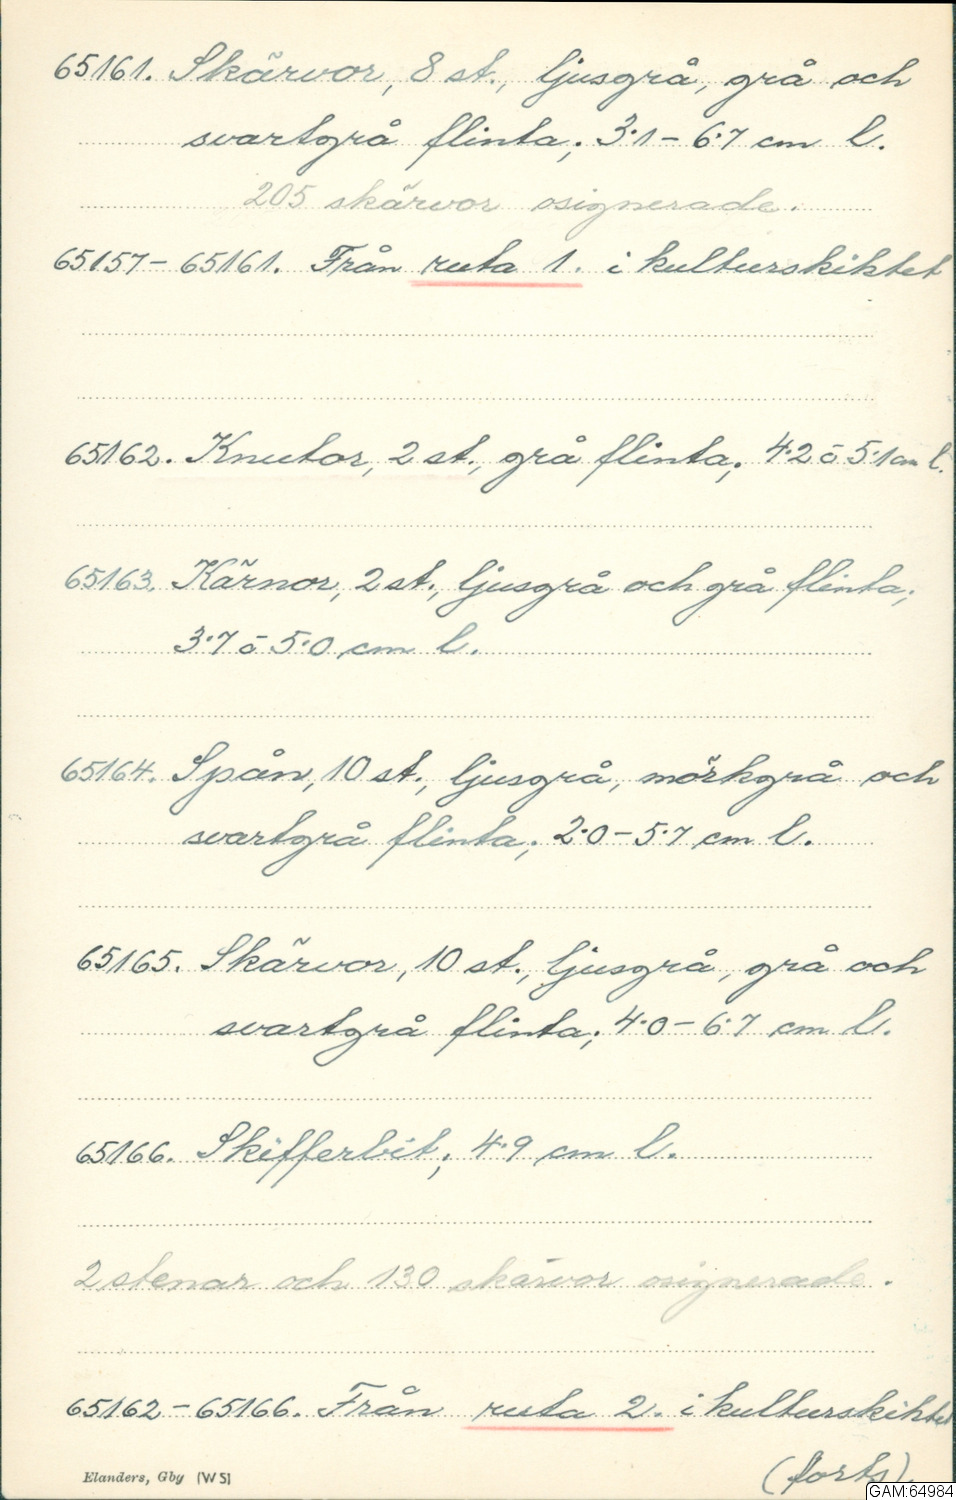 65161. Skärvor, 8 st., ljusgrå, grå och
svartgrå flinta; 3·1 – 6·7 cm l.
205 skärvor osignerade.
65157 – 65161. Från ruta 1. i kulturskiktet
65162. Knutor, 2 st., grå flinta; 4·2 o 5·1 cm l.
65163. Kärnor, 2 st., ljusgrå och grå flinta;
3·7 o 5·0 cm l.
65164. Spån, 10 st., ljusgrå, mörkgrå och
svartgrå flinta; 2·0 – 5·7 cm l.
65165. Skärvor, 10 st., ljusgrå, grå och
svartgrå flinta; 4·0 – 6·7 cm l.
65166. Skifferbit; 4·9 cm l.
2 stenar och 130 skärvor osignerade.
65162 – 65166. Från ruta 2. i kulturskiktet
(forts).
Elanders, Gby (W S)
GAM:64984